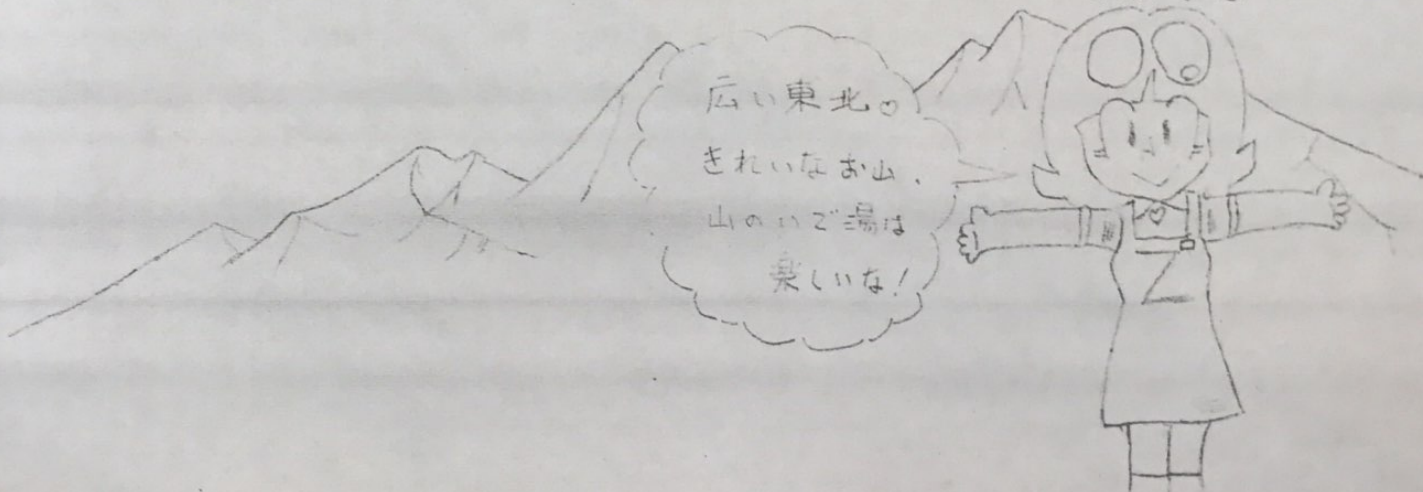 広い東北。♡
きれいなお山、
山のいで湯は
楽しいな！